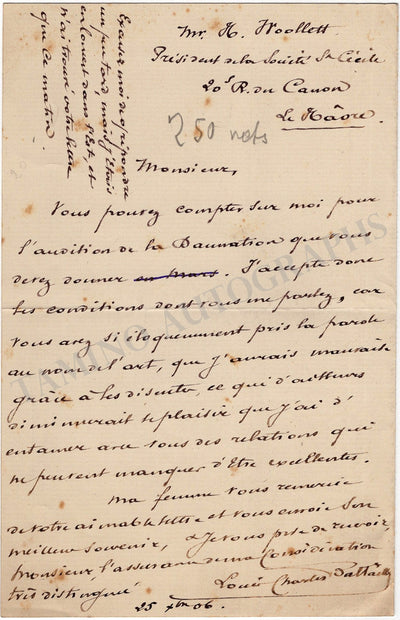 Mr. H. Woollett
Président de la Société Ste Cécile
20 R. du Canon
Le Hâvre
Excusez moi de répondre
un peu tard, mais j'étais
en tournée dans l'Est et
n'ai trouvé votre lettre
que ce matin.
250 nets
Monsieur,
Vous pouvez compter sur moi pour
l'audition de la Damnation que vous
devez donner en mars. J'accepte donc
les conditions dont vous me parlez, car
vous avez si éloquemment pris la parole
au nom de l'art, que j'aurais mauvaise
grâce à les discuter, ce qui d'ailleurs
diminuerait le plaisir que j'ai d'
entamer avec vous des relations qui
ne peuvent manquer d'être excellentes.
Ma femme vous remercie
de votre aimable lettre et vous envoie son
meilleur souvenir, & je vous prie de recevoir,
Monsieur, l'assurance de ma Considération
très distinguée
Louis Charles Battaille
25 xbre 06.
TAMINO AUTOGRAPHS